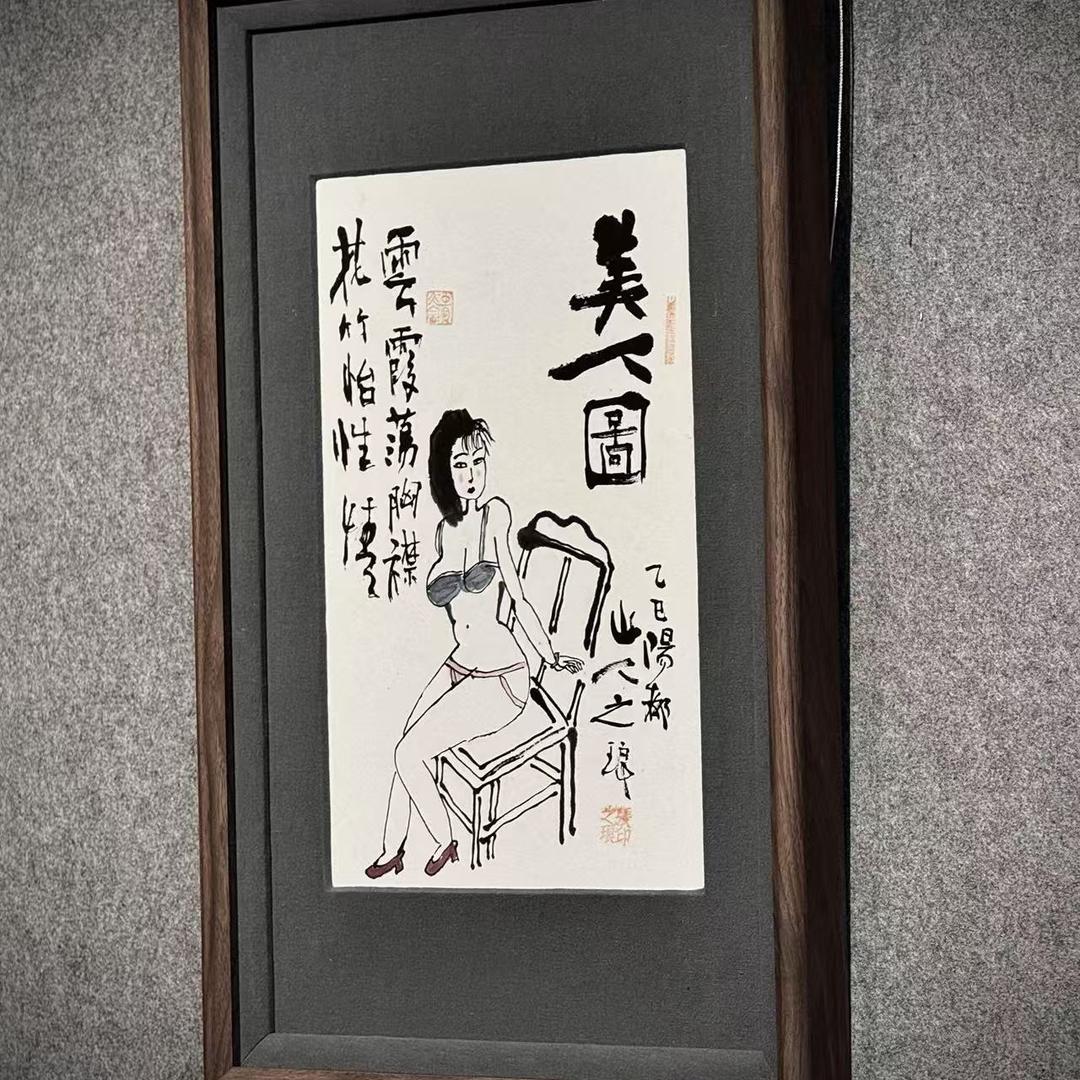 美人圖
乙巳陽都
山人之琅
雲霞蕩胸襟
花竹怡性情